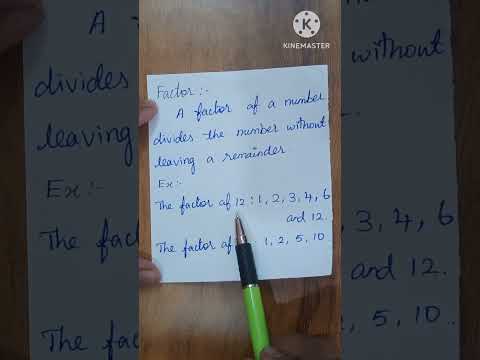 KINEMASTER
Factor :-
A factor of a number
divides the number without
leaving a remainder
Ex :-
The factor of 12 : 1, 2, 3, 4, 6
and 12.
The factor of 1, 2, 5, 10
A
divides
without
leaving
3, 4, 6
and 12.
The 5, 10.